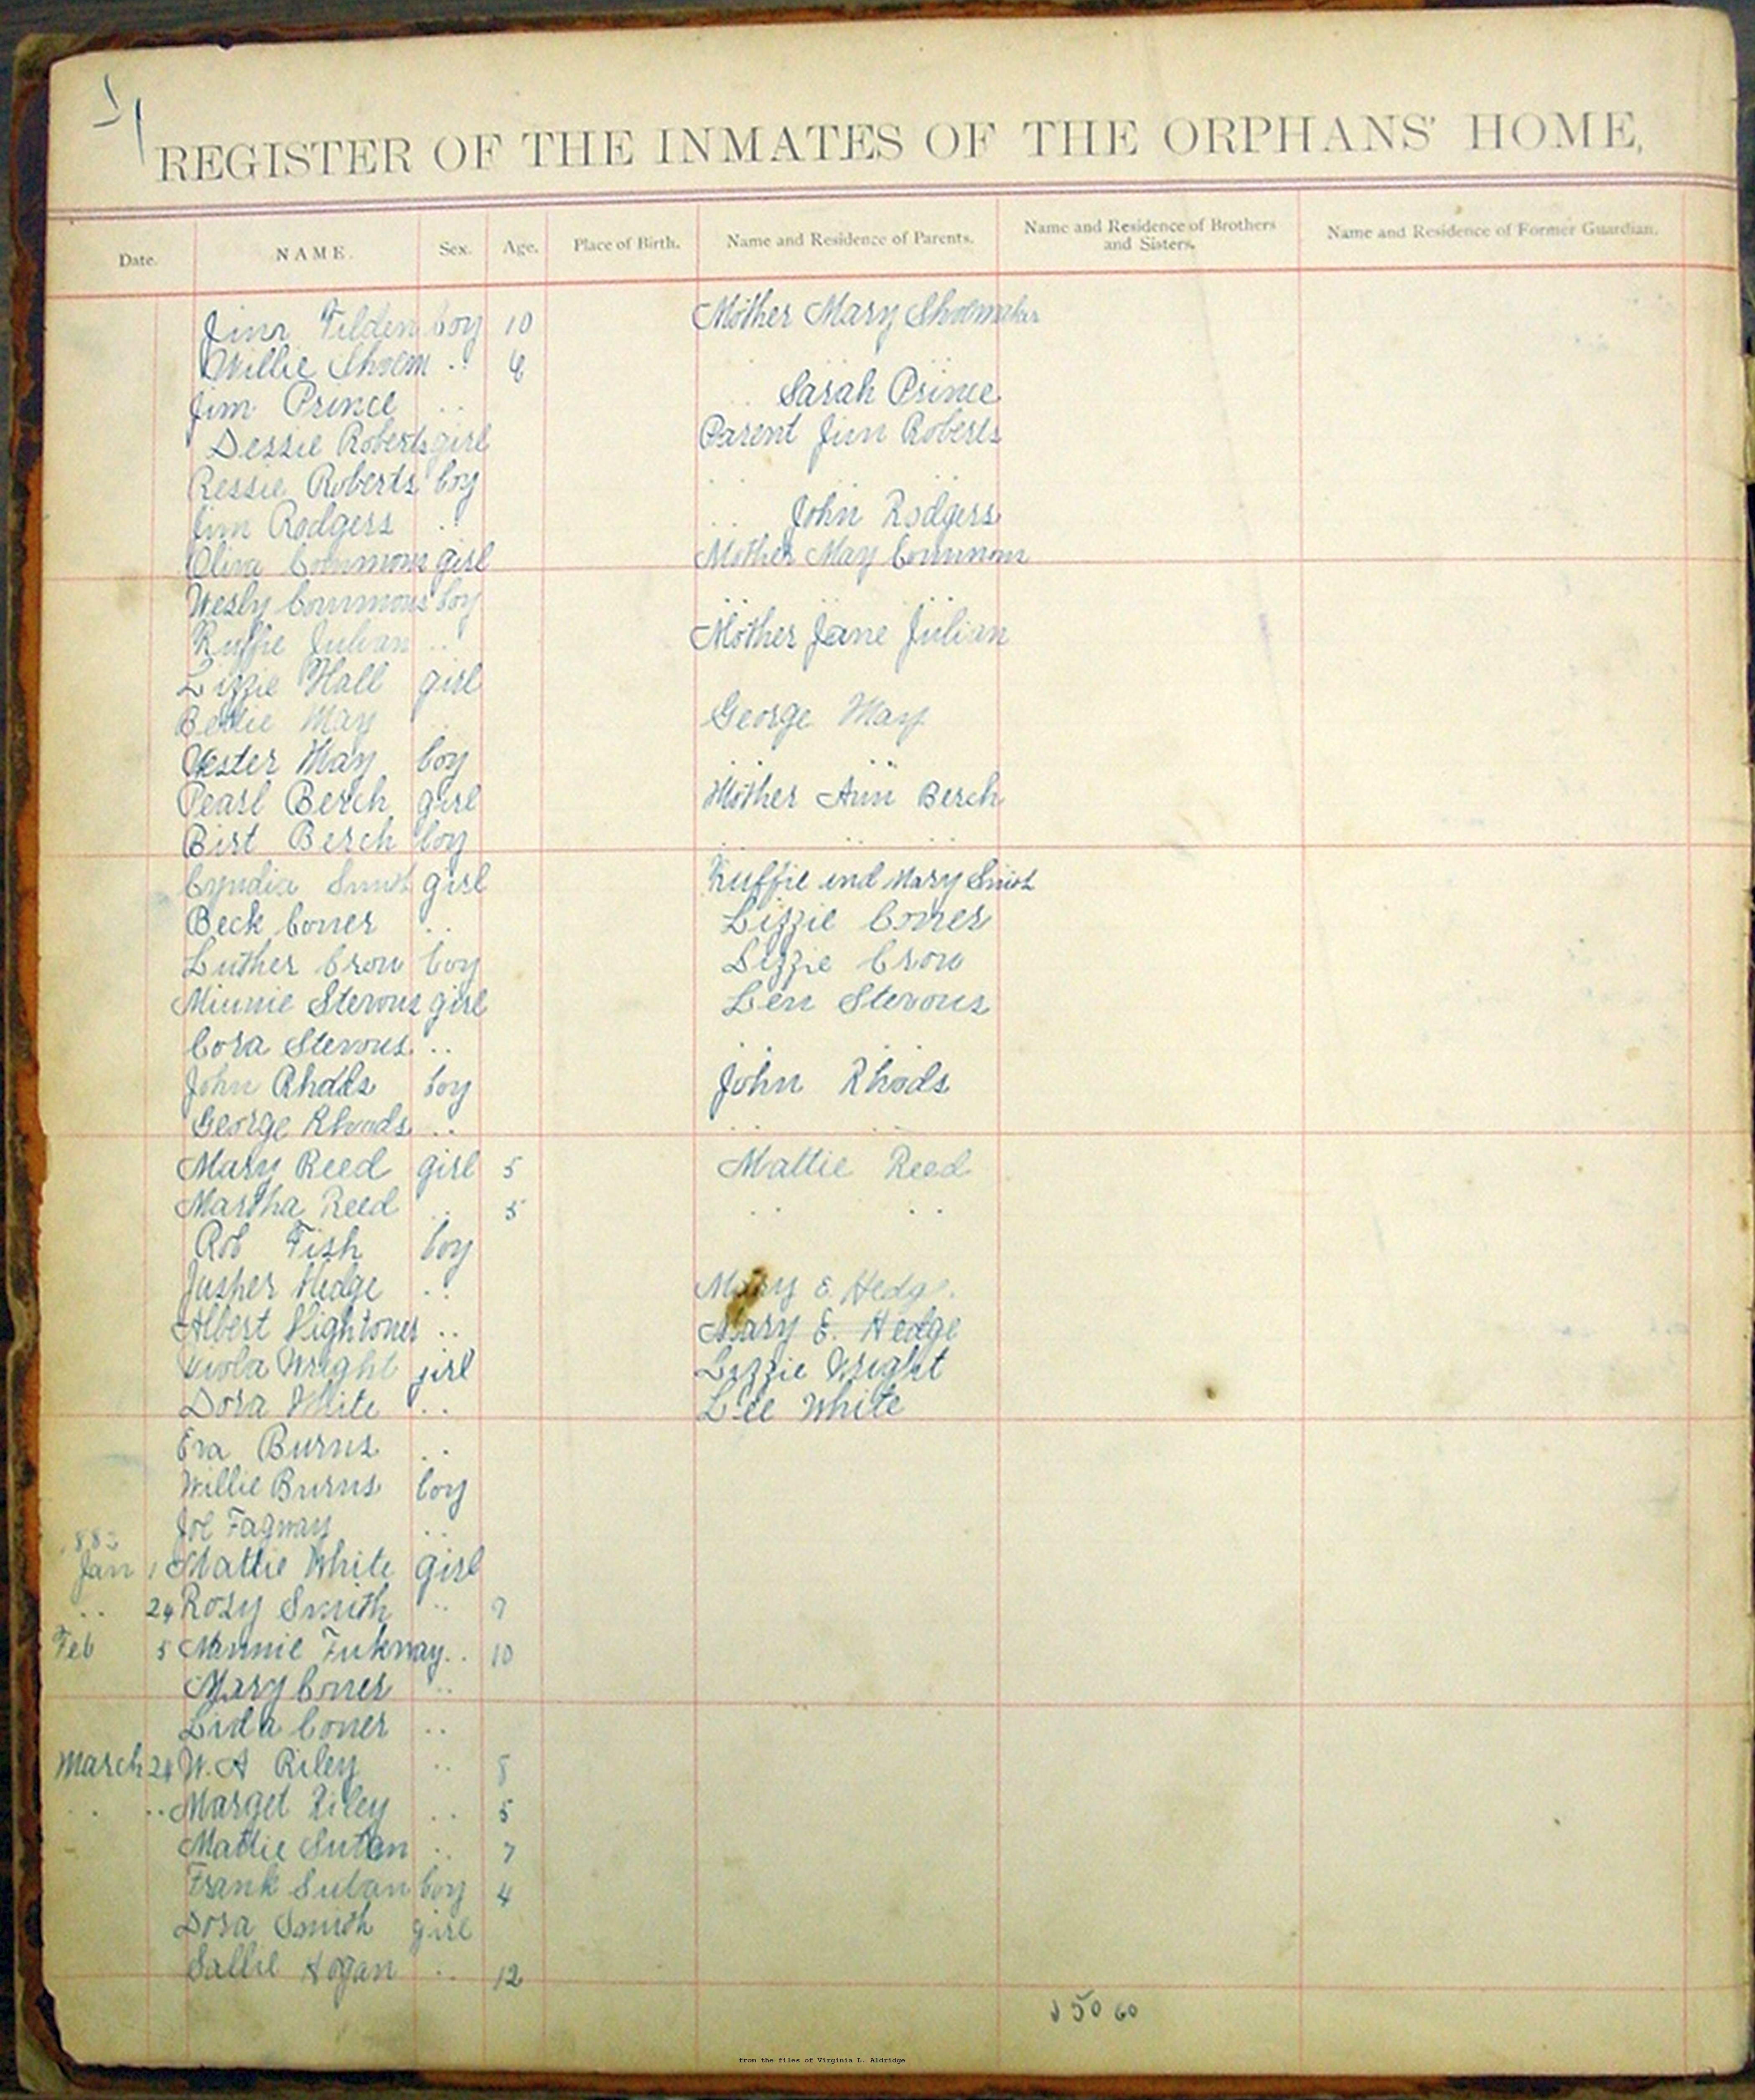 REGISTER OF THE INMATES OF THE ORPHANS' HOME,
Date. NAME. Sex. Age. Place of Birth. Name and Residence of Parents. Name and Residence of Brothers and Sisters. Name and Residence of Former Guardian.
Jim Tilden boy 10 Mother Mary Shoemaker
Willie Shoem .. 6 .. ..
Jim Prince .. .. Sarah Prince
Dessie Roberts girl Parent Jim Roberts
Ressie Roberts boy .. .. ..
Jim Rodgers .. .. John Rodgers
Oliva Commons girl Mother May Commons
Wesly Commons boy .. ..
Ruffie Julian .. Mother Jane Julian
Lizzie Hall girl
Bettie May .. George May
Vester May boy .. ..
Pearl Berch girl Mother Ann Berch
Birt Berch boy .. .. ..
Cyndia Smith girl Ruffie and Mary Smith
Beck Coner .. Lizzie Coner
Luther Crow boy Lizzie Crow
Minnie Stevons girl Len Stevons
Cora Stevons .. .. ..
John Rhods boy John Rhods
George Rhods .. .. ..
Mary Reed girl 5 Mattie Reed
Martha Reed .. 5 .. ..
Rob Fish boy
Jusper Hedge .. Mary E. Hedge
Albert Hightoner .. Mary E. Hedge
Viola Wright girl Lizzie Wright
Dora White .. Lee White
Eva Burns ..
Willie Burns boy
Joe Fagway ..
1883
Jan 1 Mattie White girl
.. 24 Rosy Smith .. 9
Feb 5 Minnie Fukway .. 10
Mary Coner ..
Lida Coner ..
March 24 W. A Riley .. 8
.. .. Marget Riley .. 5
Mattie Sutan .. 7
Frank Sutan boy 4
Dora Smith girl
Sallie Hogan .. 12
50 60
from the files of Virginia L. Aldridge